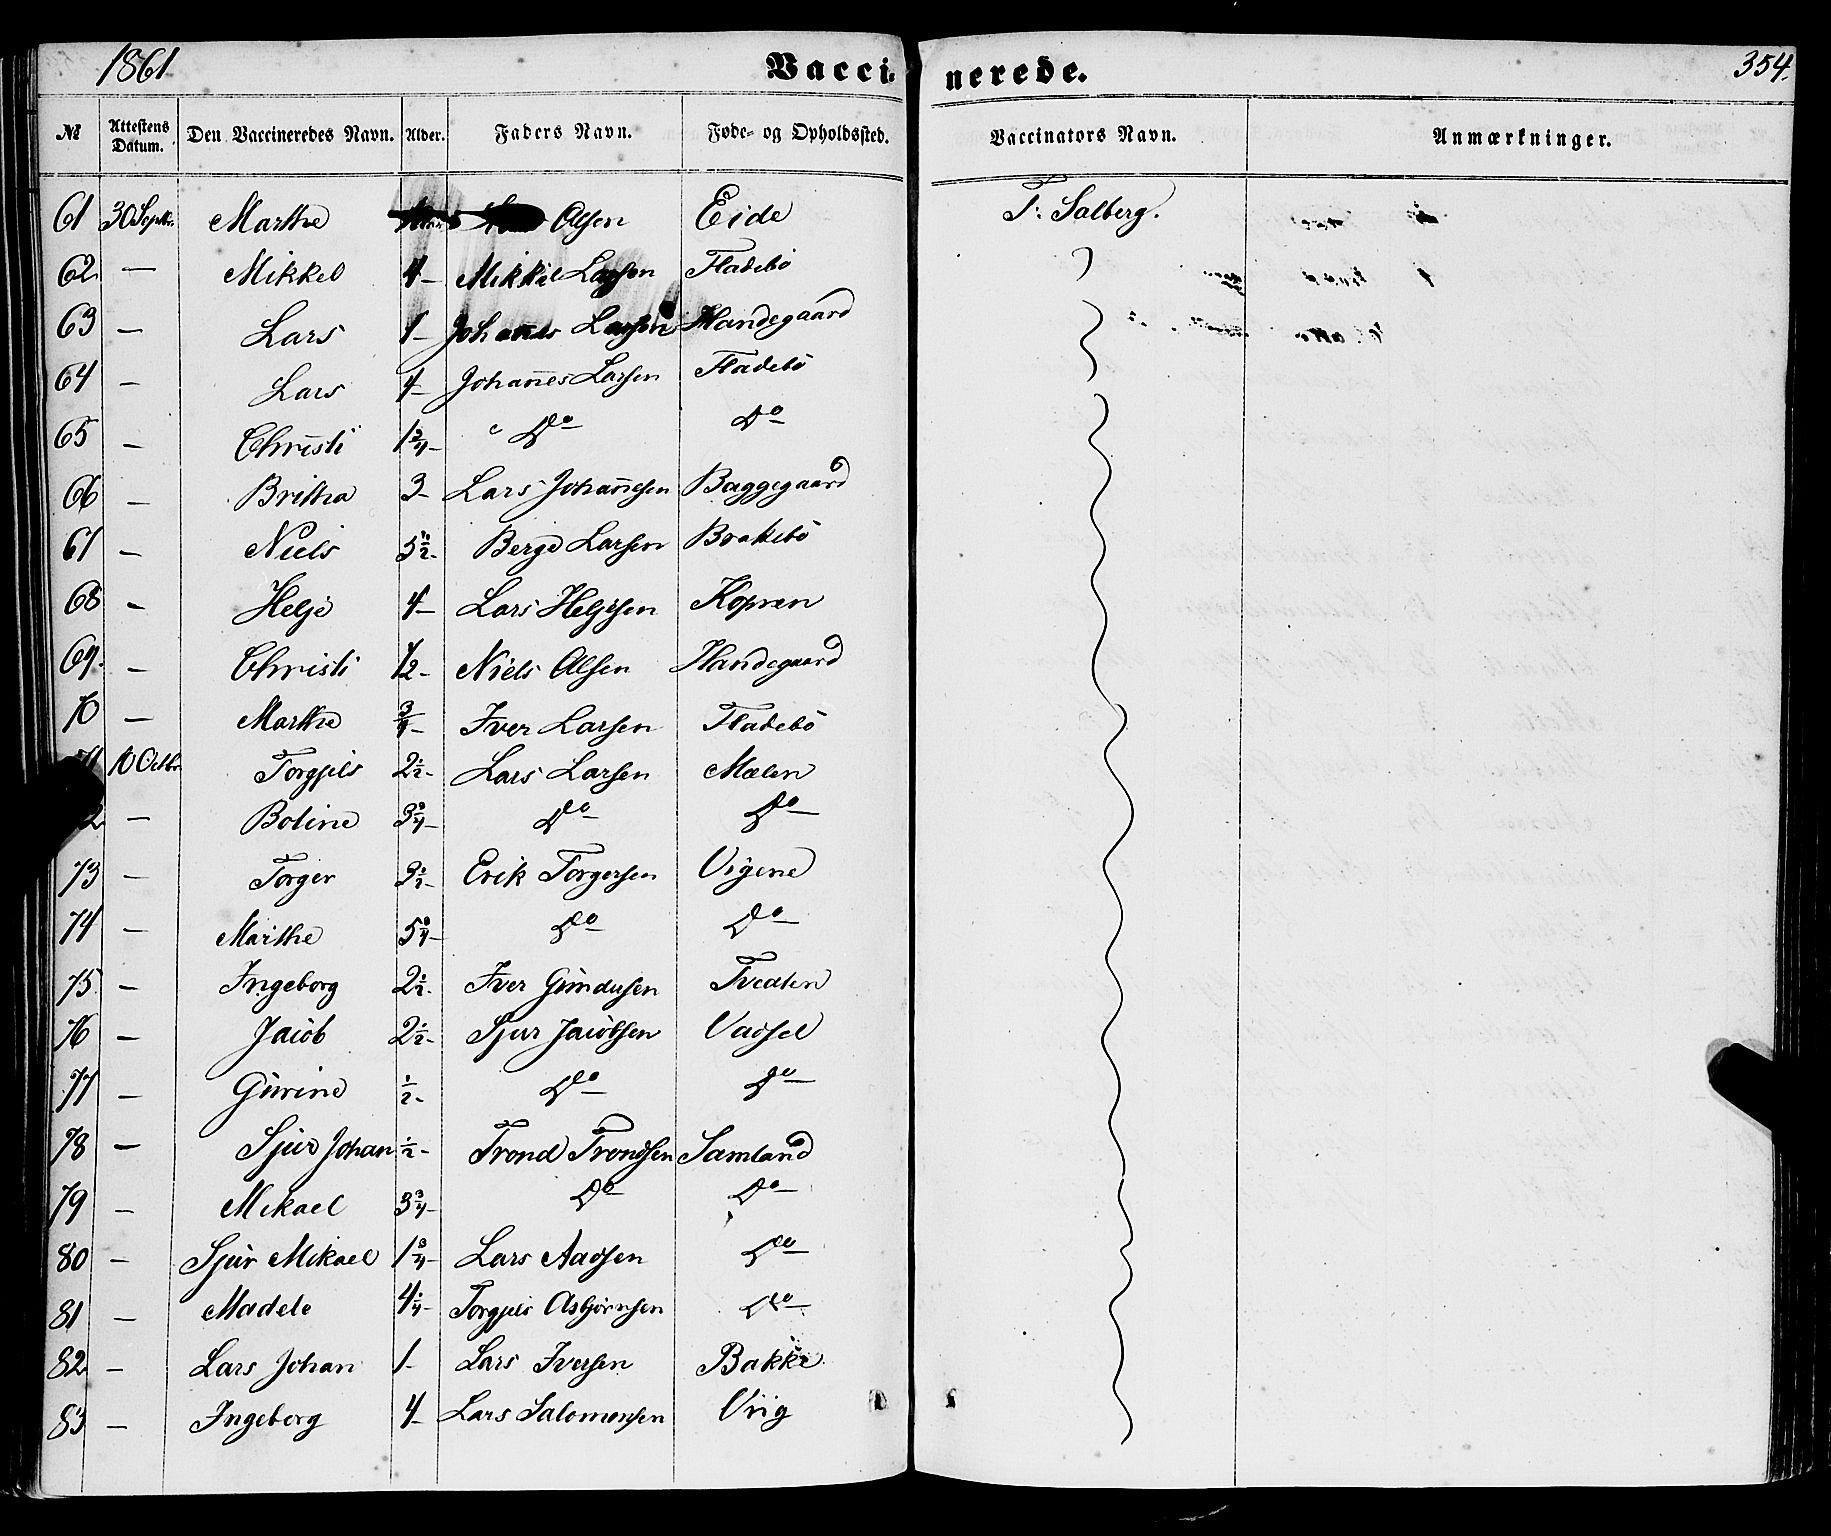 1861 Vaccinerede. 354.
№ Attestens Datum. Den Vaccineredes Navn. Alder. Faders Navn. Føde- og Opholdssted. Vaccinators Navn. Anmærkninger.
61 30 Septbr. Marthe Olsen Eide T. Salberg.
62 — Mikkel 4 – Mikkel Larsen Fladebö
63 — Lars 1 – Johannes Larsen Handegaard
64 — Lars 4 – Johannes Larsen Fladebö
65 — Christi 1 3/4 – Do – Do –
66 — Britha 3 – Lars Johannesen Baggegaard
67 — Niels 5 1/2 – Berge Larsen Brakebö
68 — Helje 4 – Lars Heljesen Kopren
69. — Christi 1/2 – Niels Olsen Handegaard
70 — Marthe 3/4 – Iver Larsen Fladebö
71 10 Octbr. Torgjils 2 1/2 – Lars Larsen Mælen
2 — Boline 3 3/4 – Do – Do –
73 — Torger 3 1/2 – Erik Torgersen Vigene
74 — Marthe 5 3/4 – Do – Do –
75 — Ingeborg 2 1/2 – Iver Gundusen Tvedten
76 — Jacob 2 1/2 – Sjur Jacobsen Vadsel
77 — Gurine 1/2 – Do – Do –
78 — Sjur Johan 1/2 – Trond Trondsen Samland
79 — Mikael 3 3/4 – Do – Do –
80 — Sjur Mikael 1 3/4 – Lars Aadsen Do –
81 — Madele 4 1/4 – Torgjils Asbjörnsen Do –
82 — Lars Johan 1 – Lars Iversen Bakke
83 — Ingeborg 4 – Lars Salomonsen Viig